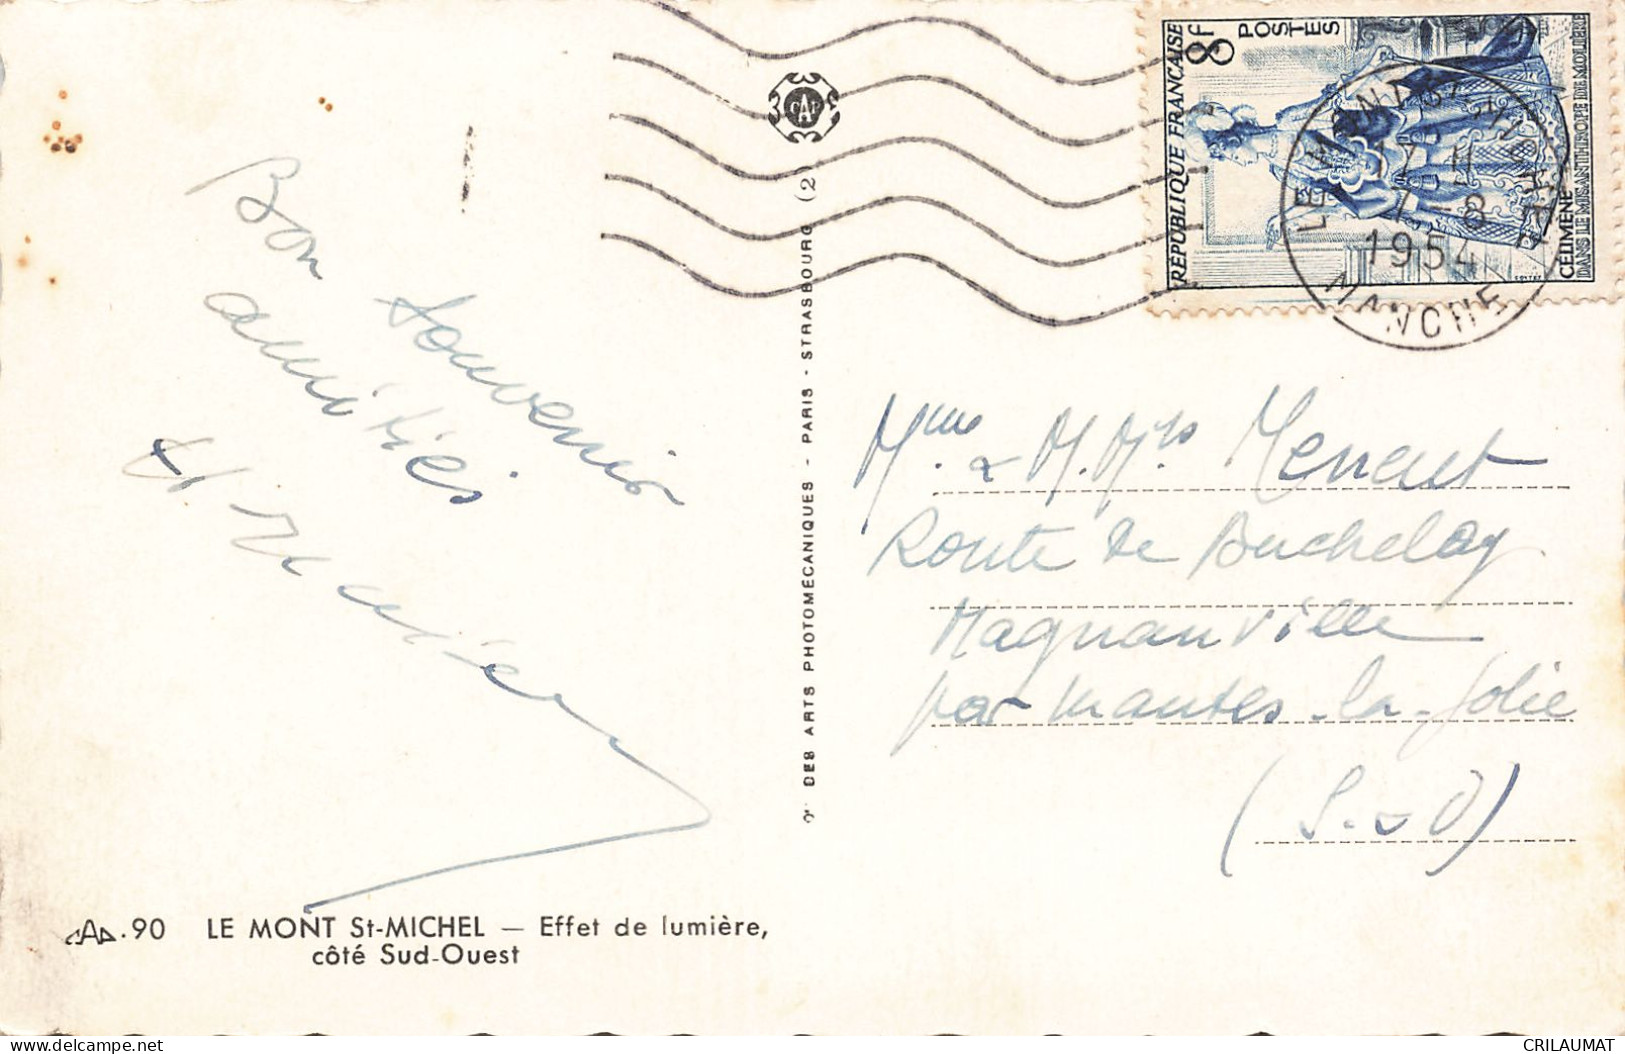 Bon
Souvenir
amitiés
CAP
Cie DES ARTS PHOTOMÉCANIQUES - PARIS - STRASBOURG (2
RÉPUBLIQUE FRANÇAISE
8F
POSTES
CÉLIMÈNE
DANS LE MISANTHROPE DE MOLIÈRE
LE MONT ST MICHEL
17 H
1954
MANCHE
Mme & M. Mrs
Route de Buchelay
Magnanville
par Mantes-la-Jolie
(S.-&-O)
CAP.90 LE MONT St-MICHEL — Effet de lumière,
côté Sud-Ouest
CRILAUMAT